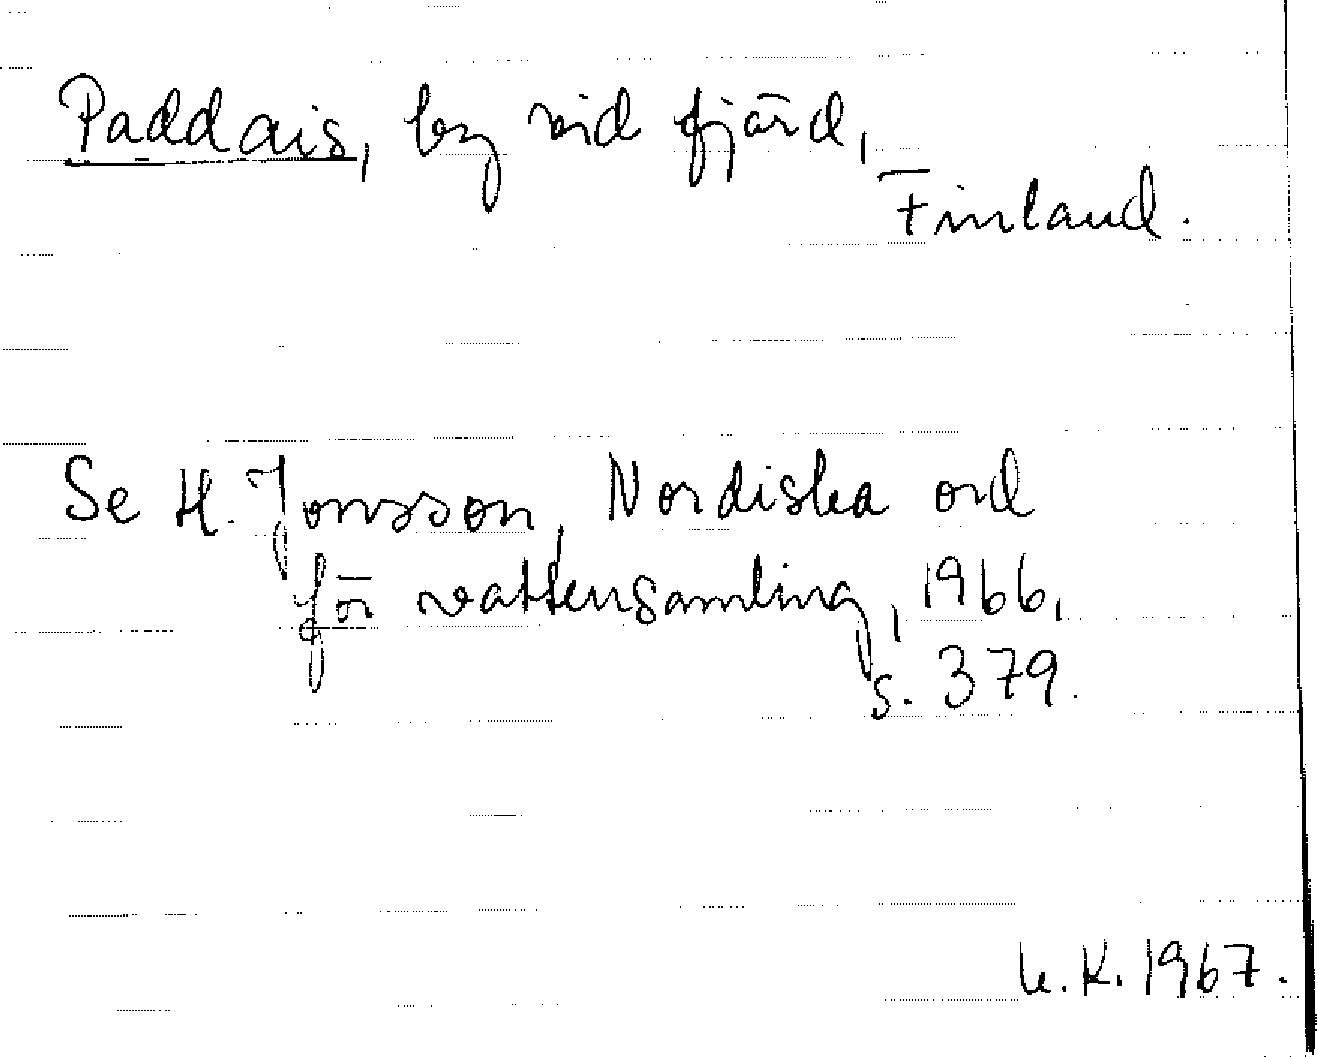 Paddais, by vid fjärd,
Finland.
Se H. Jonsson, Nordiska ord
för vattensamling, 1966,
s. 379.
K. 1967.